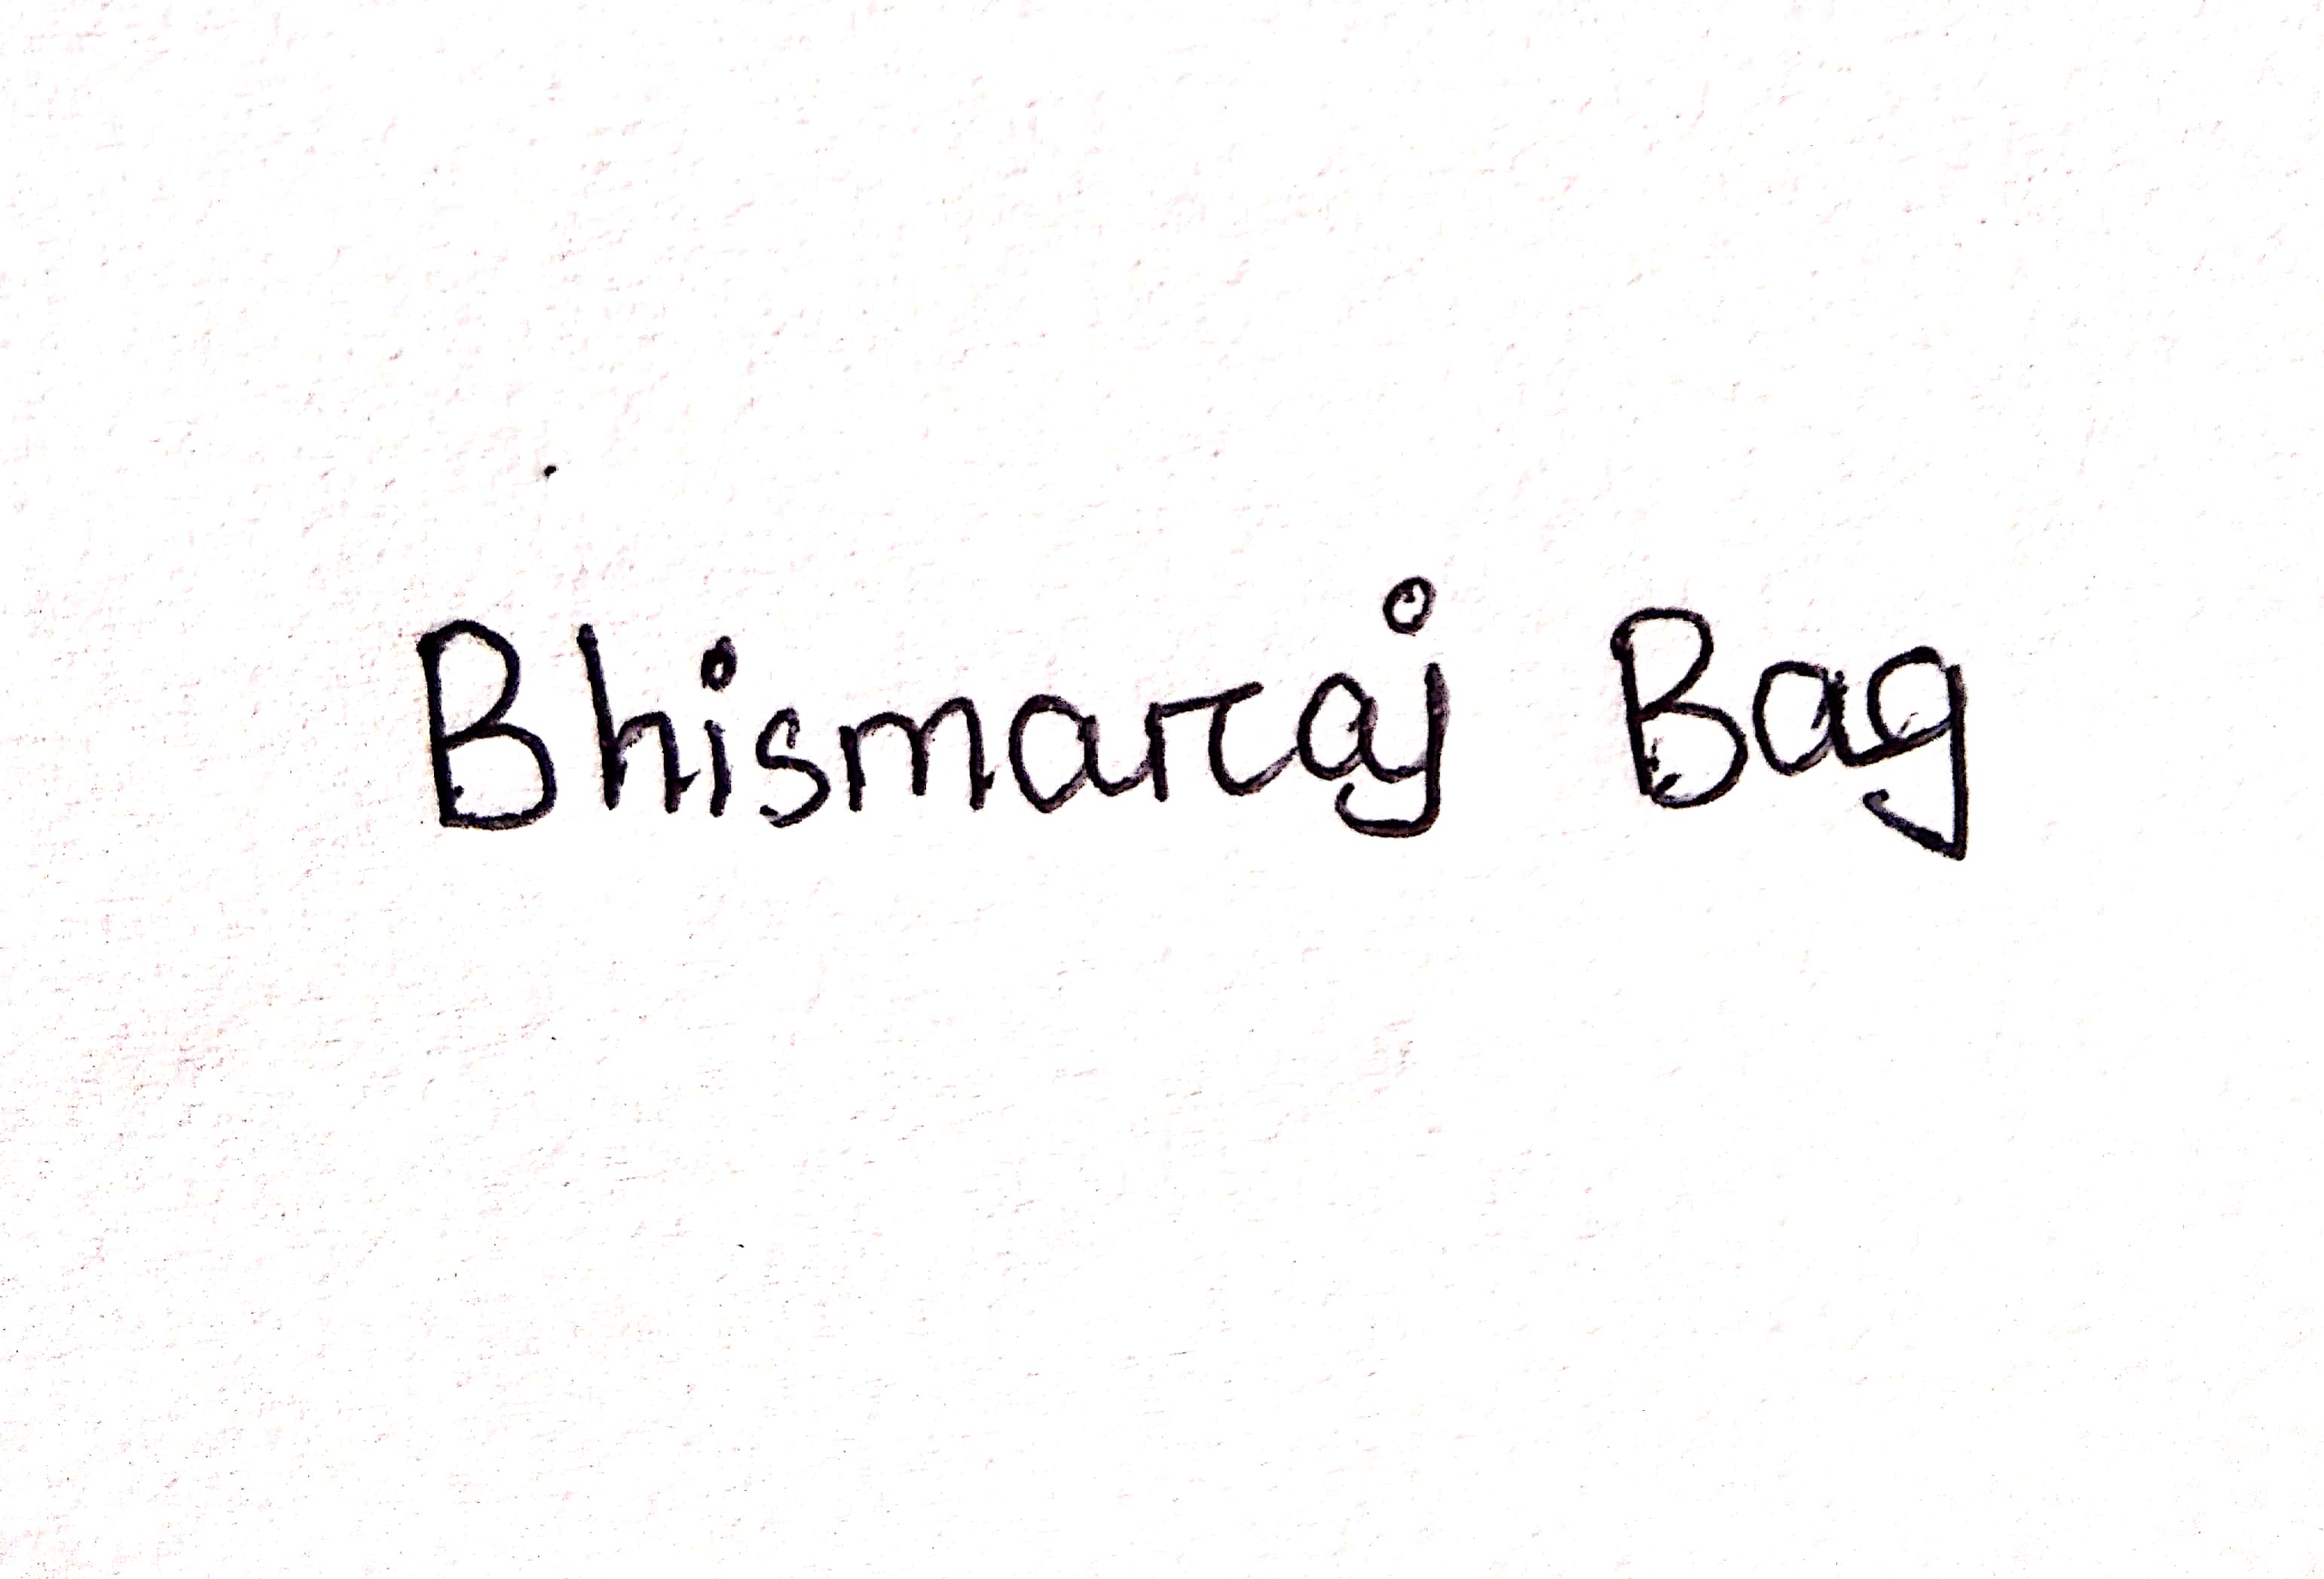 Bhismaraj Bag